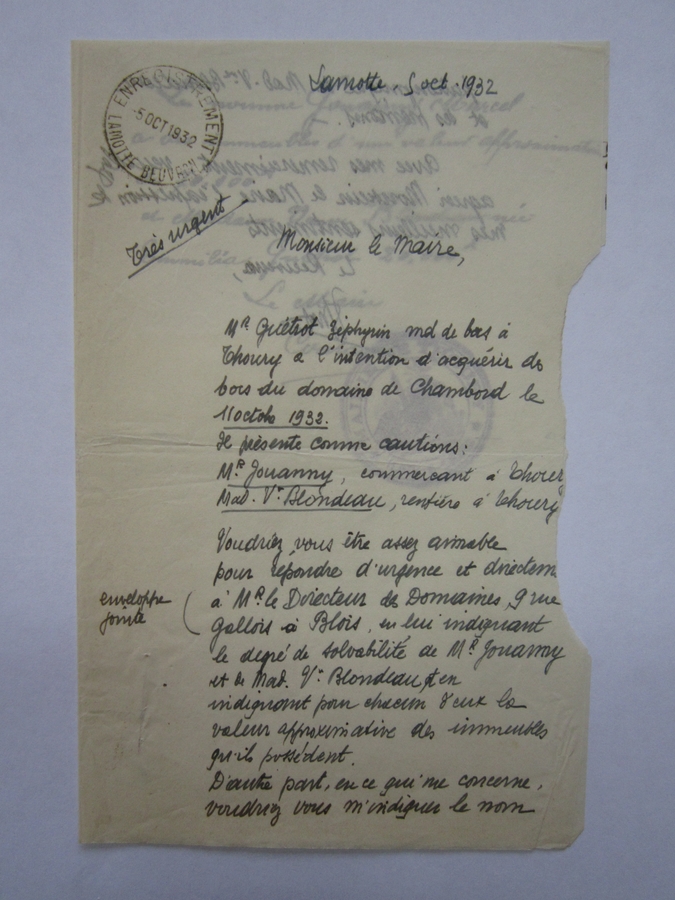 Lamotte, 5 oct. 1932
ENREGISTREMENT
-5 OCT 1932
LAMOTTE BEUVRON
Très urgent
Monsieur le Maire,
Mr Guétrot Zéphyrin md de bas à
Thoury a l'intention d'acquérir ds
bois du domaine de Chambord le
11 octobre 1932.
Il présente comme cautions :
Mr Jouanny, commerçant à Thoury
Mad. Ve Blondeau, rentière à Thoury
Voudriez vous être assez aimable
pour répondre d'urgence et directem
enveloppe
jointe
à Mr le Directeur des Domaines, 9 rue
Gallois à Blois, en lui indiquant
le degré de solvabilité de Mr Jouanny
et de Mad. Ve Blondeau, en
indiquant pour chacun d'eux la
valeur approximative des immeubles
qu'ils possèdent.
D'autre part, en ce qui me concerne,
voudriez vous m'indiquer le nom